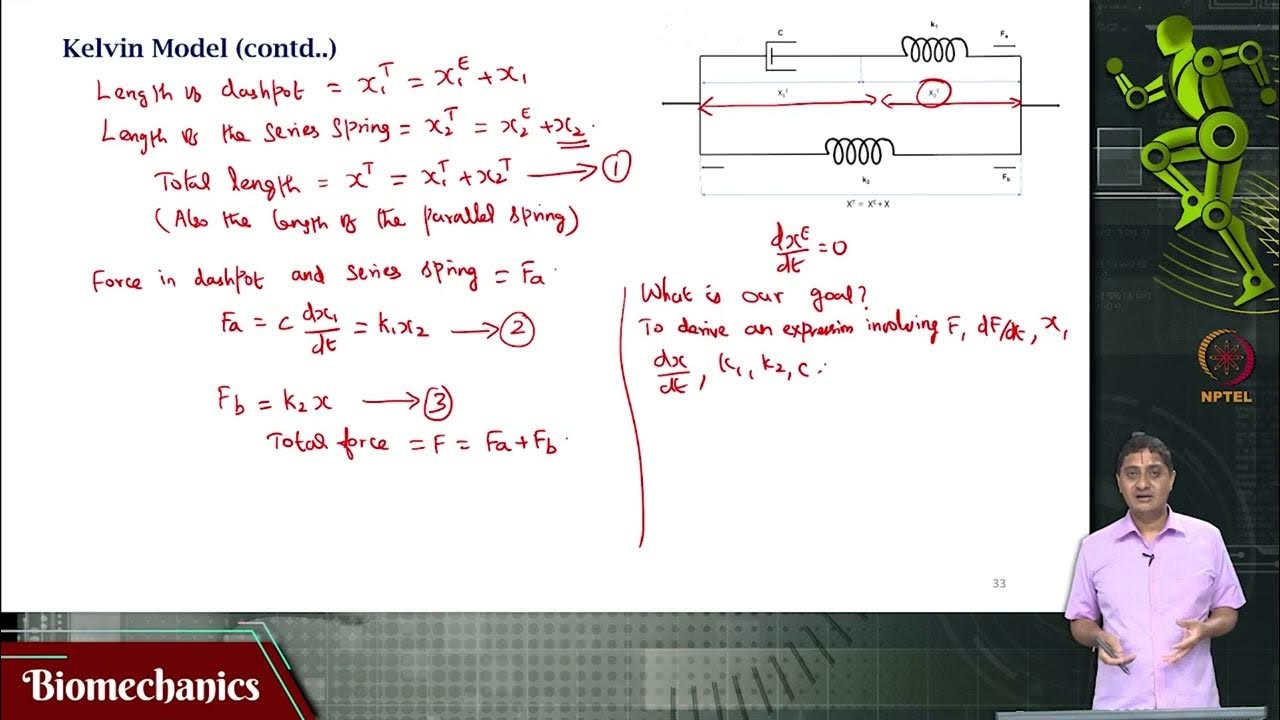 Kelvin Model (contd..)
Length of dashpot = x₁ᵀ = x₁ᴱ + x₁
Length of the series spring = x₂ᵀ = x₂ᴱ + x₂.
Total length = xᵀ = x₁ᵀ + x₂ᵀ → ①
(Also the length of the parallel spring)
Force in dashpot and series spring = Fa.
Fa = c dx₁/dt = k₁x₂ → ②
Fb = k₂x → ③
Total force = F = Fa + Fb.
C
k₁
Fₐ
X₁ᵀ
X₂ᵀ
k₂
F_b
Xᵀ = Xᴱ + X
dxᴱ/dt = 0
What is our goal?
To derive an expression involving F, dF/dt, x,
dx/dt, k₁, k₂, c.
33
NPTEL
Biomechanics